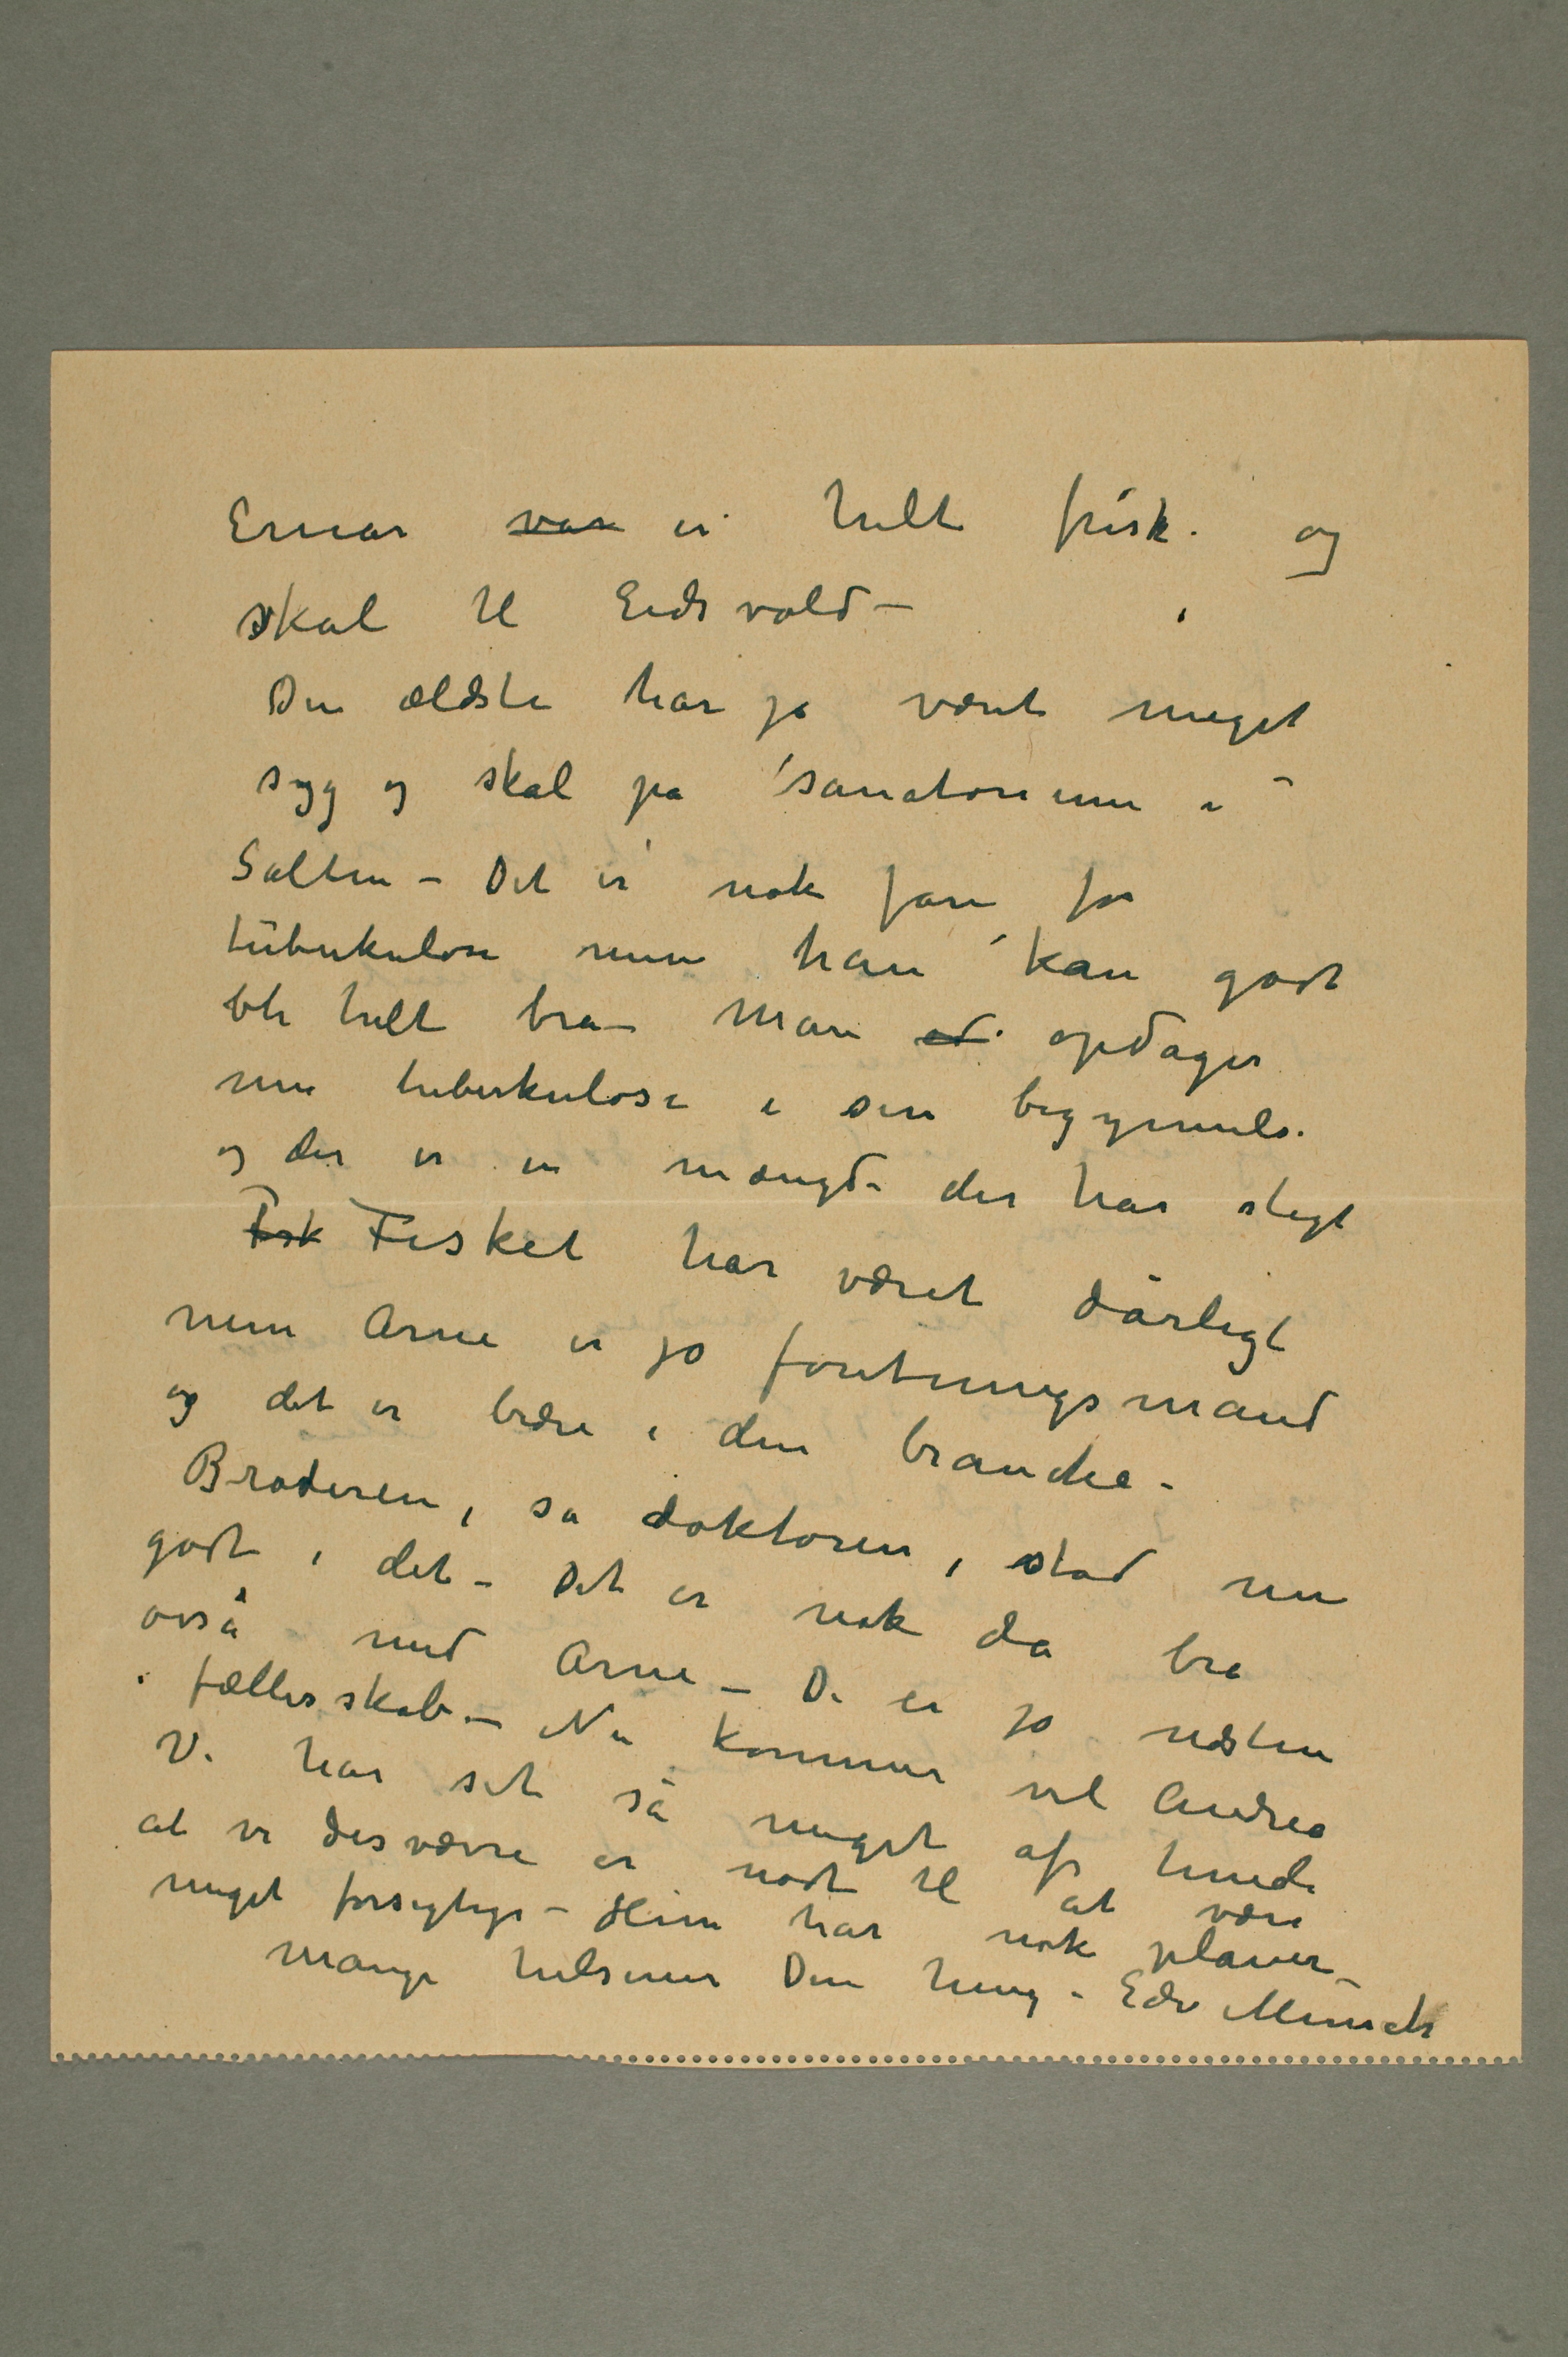 Einar var er helt frisk og
skal til Eidsvold –
Den ældste har jo været meget
syg og skal på sanatorium i
Salten – Det er nok fare for
tuberkulose men han kan godt
bli helt bra – Man od opdager
nu tuberkulose i sin begynnelse
og der er en mængde der har sligt
Fsk Fisket har været dårligt
men Arne er jo foretningsmand
og det er bedre i den branche –
Broderen, sa doktoren, stod nu
godt i det – Det er nok da bra
osså med Arne – De er jo næsten
i fællesskab – Nu kommer vel Andrea
Vi har set så meget af hende
at vi desværre er nødt til at være
meget forsigtige – Hun har nok planer –
Mange hilsener Din heng. Edv Munch